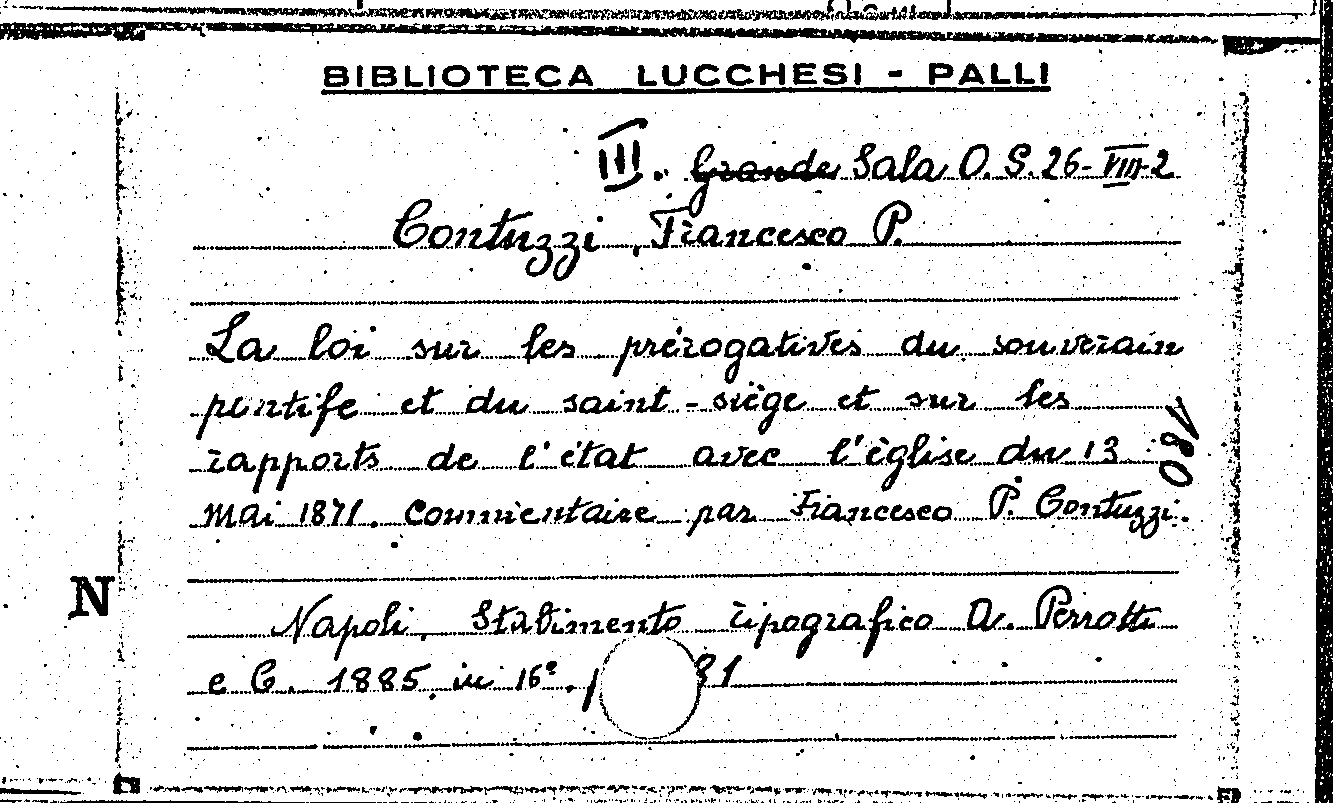 BIBLIOTECA LUCCHESI - PALLI
III. Grande Sala O. S. 26-VIII-2
Contuzzi, Francesco P.
La loi sur les prérogatives du souverain
pontife et du saint-siège et sur les
rapports de l'état avec l'église du 13
mai 1871. Commentaire par Francesco P. Contuzzi.
N
Napoli, Stabimento tipografico A. Perrotti
e C. 1885 in 16°. 31